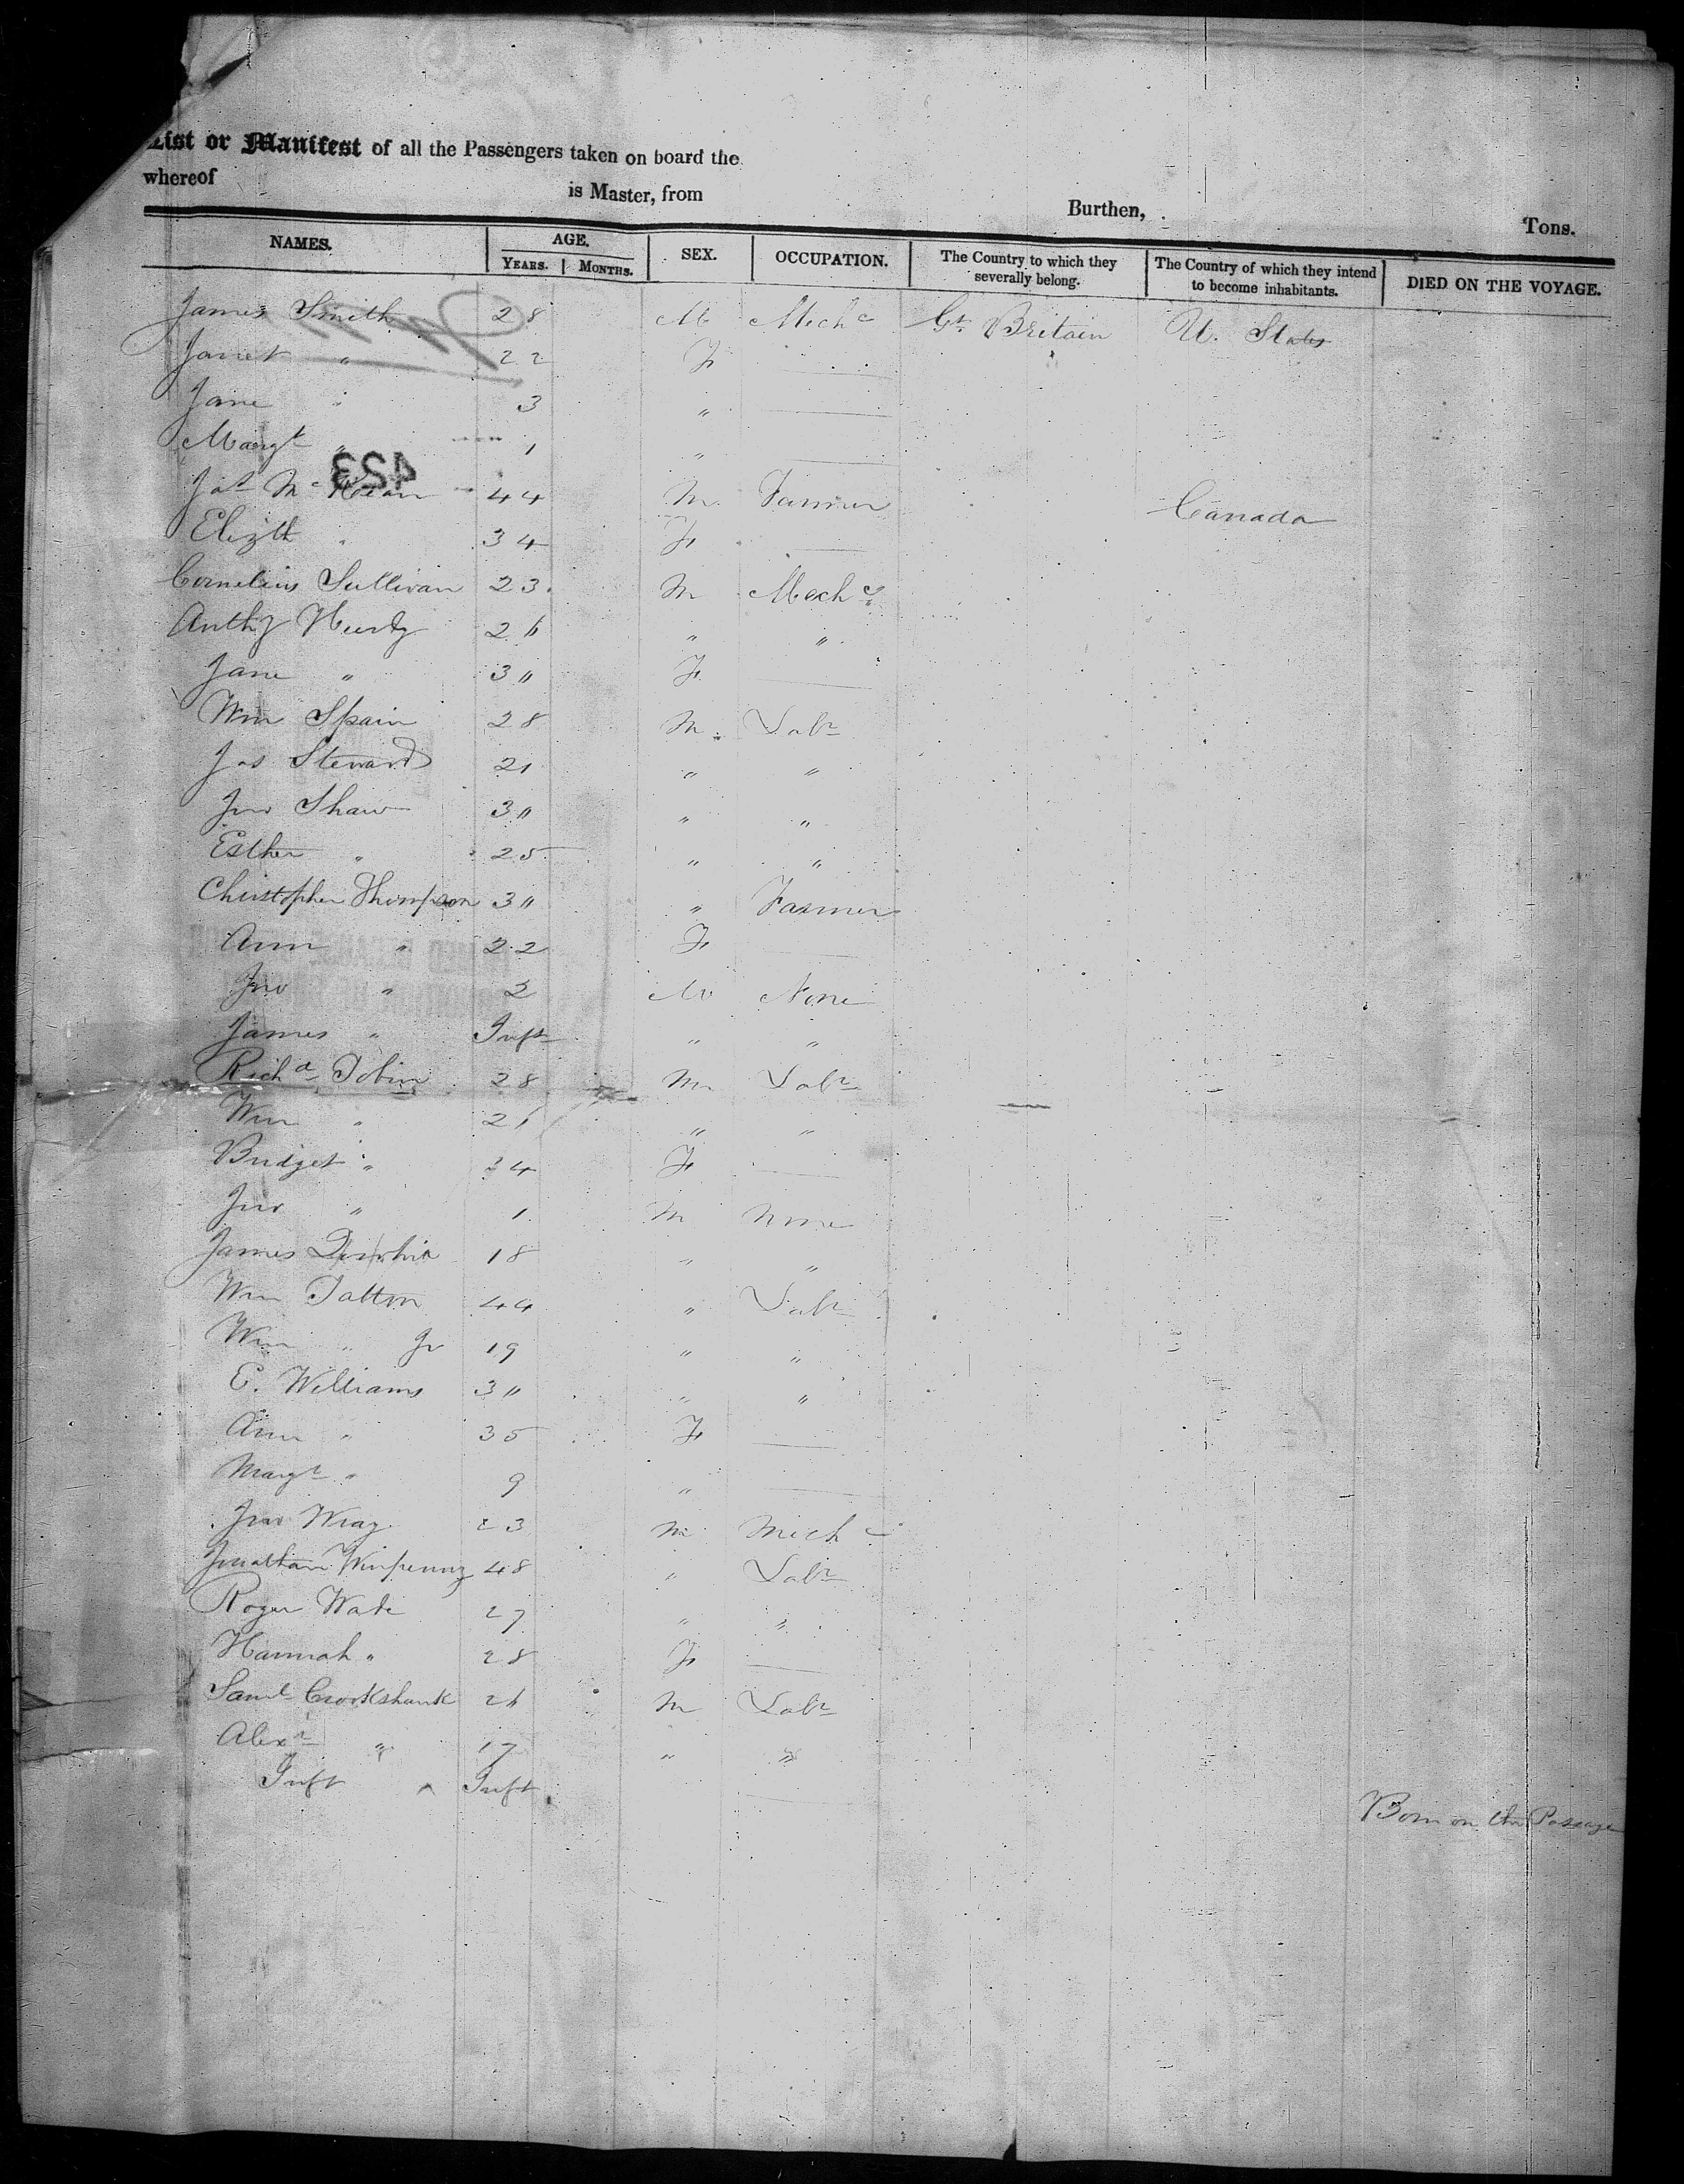 List or Manifest of all the Passengers taken on board the
whereof is Master, from Burthen, Tons.
NAMES. AGE. YEARS. MONTHS. SEX. OCCUPATION. The Country to which they severally belong. The Country of which they intend to become inhabitants. DIED ON THE VOYAGE.
James Smith 28 M Mechc Gt. Britain U. States
Janet " 22 F
Jane " 3 "
Margt " 1 "
Jas Mc 44 M Farmer Canada
Elizth " 34 F
Cornelius Sullivan 23 M Mechc
Anthy 26 " "
Jane " 3" F
Wm Spain 28 M Labr
Jas Steward 21 " "
Jno Shaw 3" " "
Esther " 25 " "
Christopher Thompson 3" " Farmer
Ann " 22 F
Jno " 2 M None
James " Inft " "
Richd Tobin 28 M Labr
Wm " 26 " "
Bridget " 34 F
Jno " 1 M None
James 18 " "
Wm Tatton 44 " Labr
Wm " Jr 19 " "
E. Williams 3" " "
Ann " 35 F
Margt " 9 "
Jno Wray 23 M Mechc
Jonathan Winpenny 48 " Labr
Roger Wade 27 " "
Hannah " 28 F
Saml Crookshank 26 M Labr
Alexr " 17 " "
Inft " Inft Born on the Passage
423